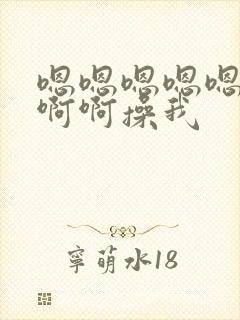 嗯嗯嗯嗯嗯
啊啊操我
寧萌水18